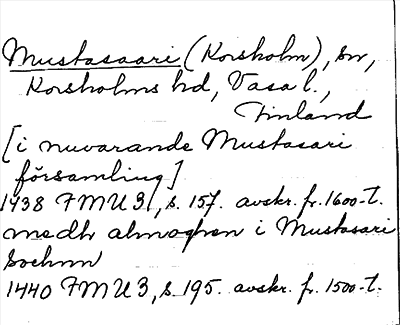 Mustasaari (Korsholm), sn,
Korsholms hd, Vasa l.,
Finland
[i nuvarande Mustasari
församling]
1438 FMU 3, s. 157. avskr. fr. 1600-t.
medh almoghen i Mustasari
sochnn
1440 FMU 3, s. 195. avskr. fr. 1500-t.